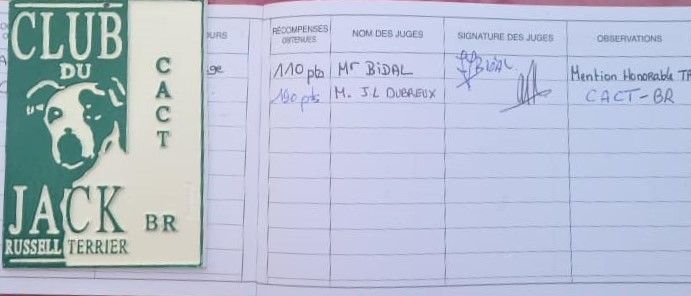 CLUB
DU
JACK
RUSSELL TERRIER
CACT
BR
OURS
RÉCOMPENSES OBTENUES
NOM DES JUGES
SIGNATURE DES JUGES
OBSERVATIONS
110 pts Mr BIDAL BIDAL Mention Honorable TA
190 pts M. J.L DUBREUX CACT-BR